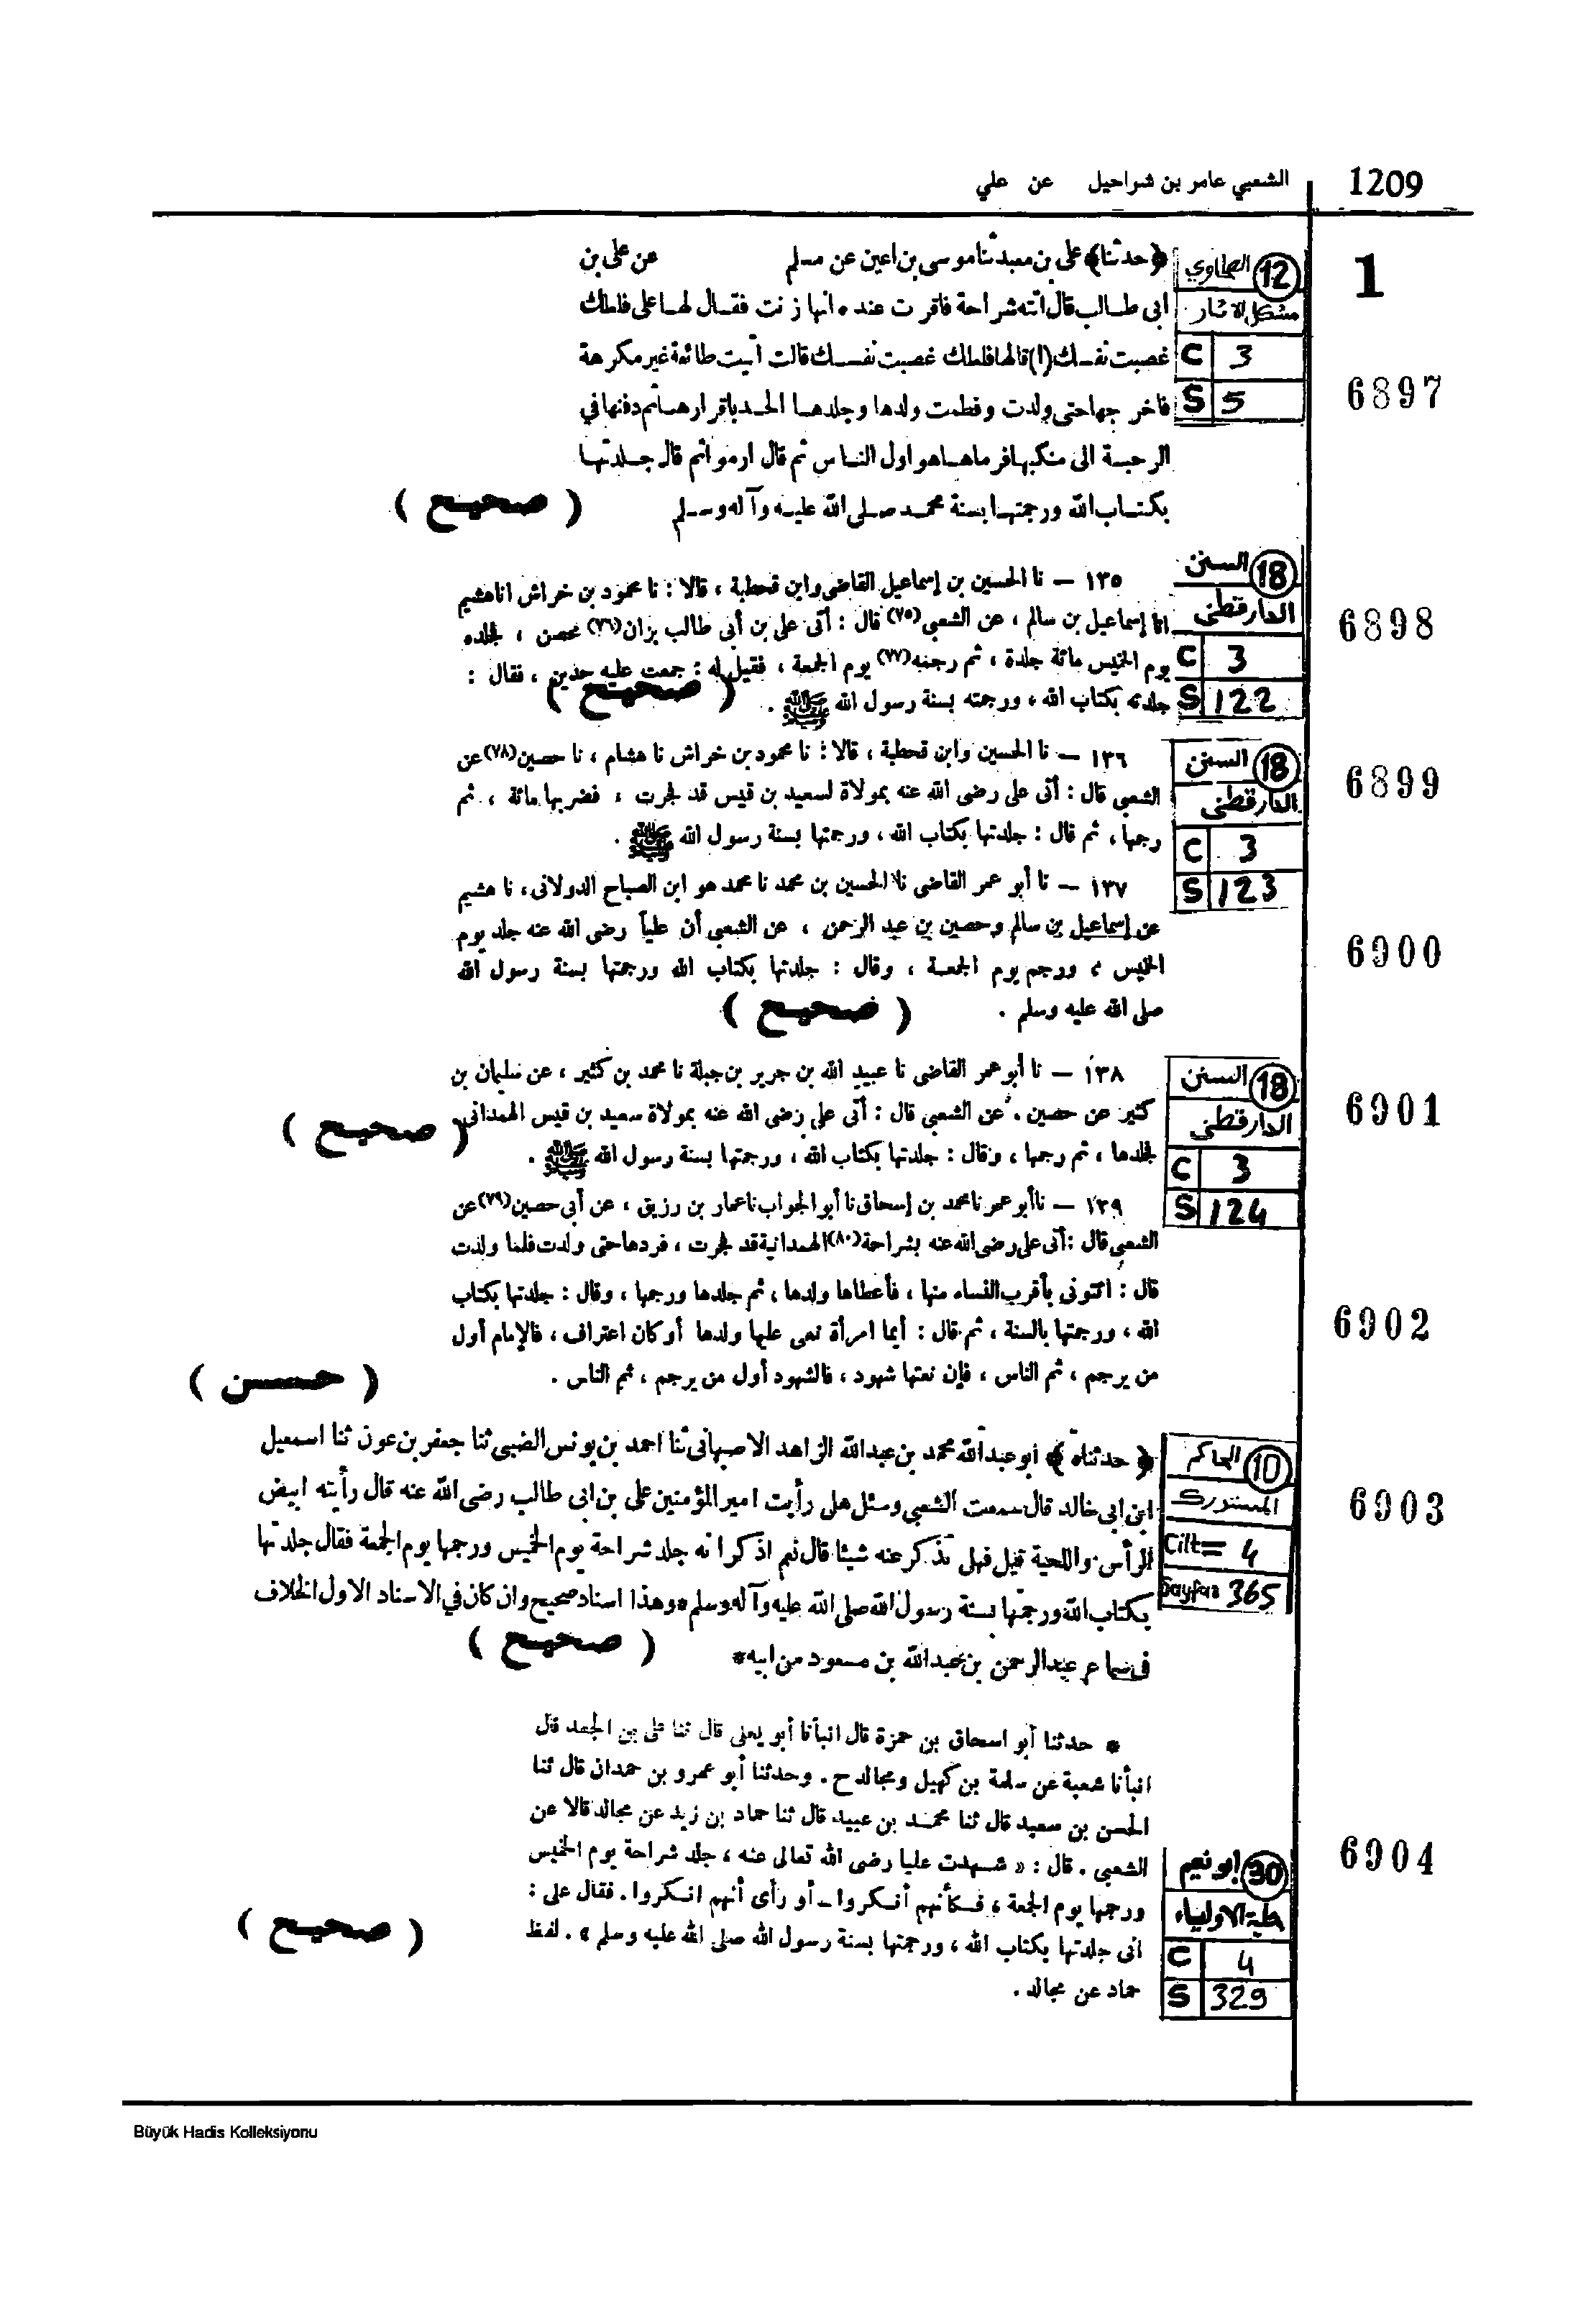 1209
الشعبي عامر بن شراحيل عن علي
1
12 الطحاوي
مشكل الآثار
C 3
S 5
6897
﴿حدثنا﴾ على بن معبد ثنا موسى بن اعين عن مسلم عن على بن
ابى طالب قال اتته شراحة فاقرت عنده انها زنت فقال لها على فلعلك
غصبت نفسك (١) قالها فلعلك غصبت نفسك قالت اتيت طائعة غير مكرهة
فاخرجها حتى ولدت وفطمت ولدها وجلدها الحد باقرارها ثم دفنها في
الرحبة الى منكبها فرماها هو اول الناس ثم قال ارموا ثم قال جلدتها
بكتاب الله ورجمتها بسنة محمد صلى الله عليه وآله وسلم
( صحيح )
18 السنن
الدارقطني
C 3
S 122
6898
١٣٥ – نا الحسين بن إسماعيل القاضى وابن قحطبة ، قالا : نا محمود بن خراش انا هشيم
انا إسماعيل بن سالم ، عن الشعبي (٧٥) قال : أتى على بن أبي طالب بزان (٧٦) محصن ، فجلده
يوم الخميس مائة جلدة ، ثم رجمه (٧٧) يوم الجمعة ، فقيل له : جمعت عليه حدين ، فقال :
جلدته بكتاب الله ، ورجمته بسنة رسول الله ﷺ .
( صحيح )
18 السنن
الدارقطني
C 3
S 123
6899
١٣٦ – نا الحسين وابن قحطبة ، قالا : نا محمود بن خراش نا هشام ، نا حصين (٧٨) عن
الشعبي قال : أتى على رضى الله عنه بمولاة لسعيد بن قيس قد فجرت ، فضربها مائة ، ثم
رجمها ، ثم قال : جلدتها بكتاب الله ، ورجمتها بسنة رسول الله ﷺ .
6900
١٣٧ – نا أبو عمر القاضى نا الحسين بن محمد نا محمد هو ابن الصباح الدولابى ، نا هشيم
عن إسماعيل بن سالم وحصين بن عبد الرحمن ، عن الشعبي أن علياً رضى الله عنه جلد يوم
الخميس ، ورجم يوم الجمعة ، وقال : جلدتها بكتاب الله ورجمتها بسنة رسول الله
صلى الله عليه وسلم .
( صحيح )
18 السنن
الدارقطني
C 3
S 124
6901
١٣٨ – نا أبو عمر القاضى نا عبيد الله بن جرير بن جبلة نا محمد بن كثير ، عن سليمان بن
كثير عن حصين . عن الشعبي قال : أتى على رضى الله عنه بمولاة سعيد بن قيس الهمدانى
فجلدها ، ثم رجمها ، وقال : جلدتها بكتاب الله ، ورجمتها بسنة رسول الله ﷺ .
( صحيح )
6902
١٣٩ – نا أبو عمر نا محمد بن إسحاق نا أبو الجواب نا عمار بن رزيق ، عن أبي حصين (٧٩) عن
الشعبي قال : أتى على رضى الله عنه بشراحة (٨٠) الهمدانية قد فجرت ، فردها حتى ولدت فلما ولدت
قال : ائتونى بأقرب النساء منها ، فأعطاها ولدها ، ثم جلدها ورجمها ، وقال : جلدتها بكتاب
الله ، ورجمتها بالسنة ، ثم قال : أيما امرأة نعى عليها ولدها أو كان اعتراف ، فالإمام أول
من يرجم ، ثم الناس ، فإن نعتها شهود ، فالشهود أول من يرجم ، ثم الناس .
( حسن )
10 الحاكم
المستدرك
Cilt = 4
Sayfa 365
6903
﴿ حدثناه ﴾ ابو عبد الله محمد بن عبد الله الزاهد الاصبهانى ثنا احمد بن يونس الضبى ثنا جعفر بن عون ثنا اسمعيل
ابن ابى خالد قال سمعت الشعبى وسئل هل رأيت امير المؤمنين على بن ابى طالب رضى الله عنه قال رأيته ابيض
الرأس واللحية قيل فهل تذكر عنه شيئا قال نعم اذكر انه جلد شراحة يوم الخميس ورجمها يوم الجمعة فقال جلدتها
بكتاب الله ورجمتها بسنة رسول الله صلى الله عليه وآله وسلم * وهذا اسناد صحيح وان كان في الاسناد الاول الخلاف
فى سماع عبد الرحمن بن عبد الله بن مسعود من ابيه *
( صحيح )
* حدثنا أبو اسحاق بن حمزة قال انبأنا أبو يعلى قال ثنا على بن الجعد قال
انبأنا شعبة عن سلمة بن كهيل ومجالد ح . وحدثنا أبو عمرو بن حمدان قال ثنا
الحسن بن سعيد قال ثنا محمد بن عبيد قال ثنا حماد بن زيد عن مجالد قالا عن
الشعبي . قال : « شهدت عليا رضى الله تعالى عنه ، جلد شراحة يوم الخميس
ورجمها يوم الجمعة ، فكأنهم أنكروا – أو رأى أنهم انكروا . فقال على :
انى جلدتها بكتاب الله ، ورجمتها بسنة رسول الله صلى الله عليه وسلم » . لفظ
حماد عن مجالد .
( صحيح )
30 ابو نعيم
حلية الاولياء
C 4
S 329
6904
Büyük Hadis Kolleksiyonu